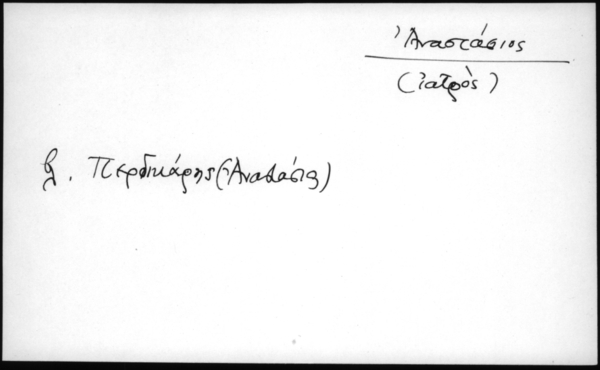 Ἀναστάσιος
(ἰατρὸς)
βλ. Περδικάρης (Ἀναστάσιος)